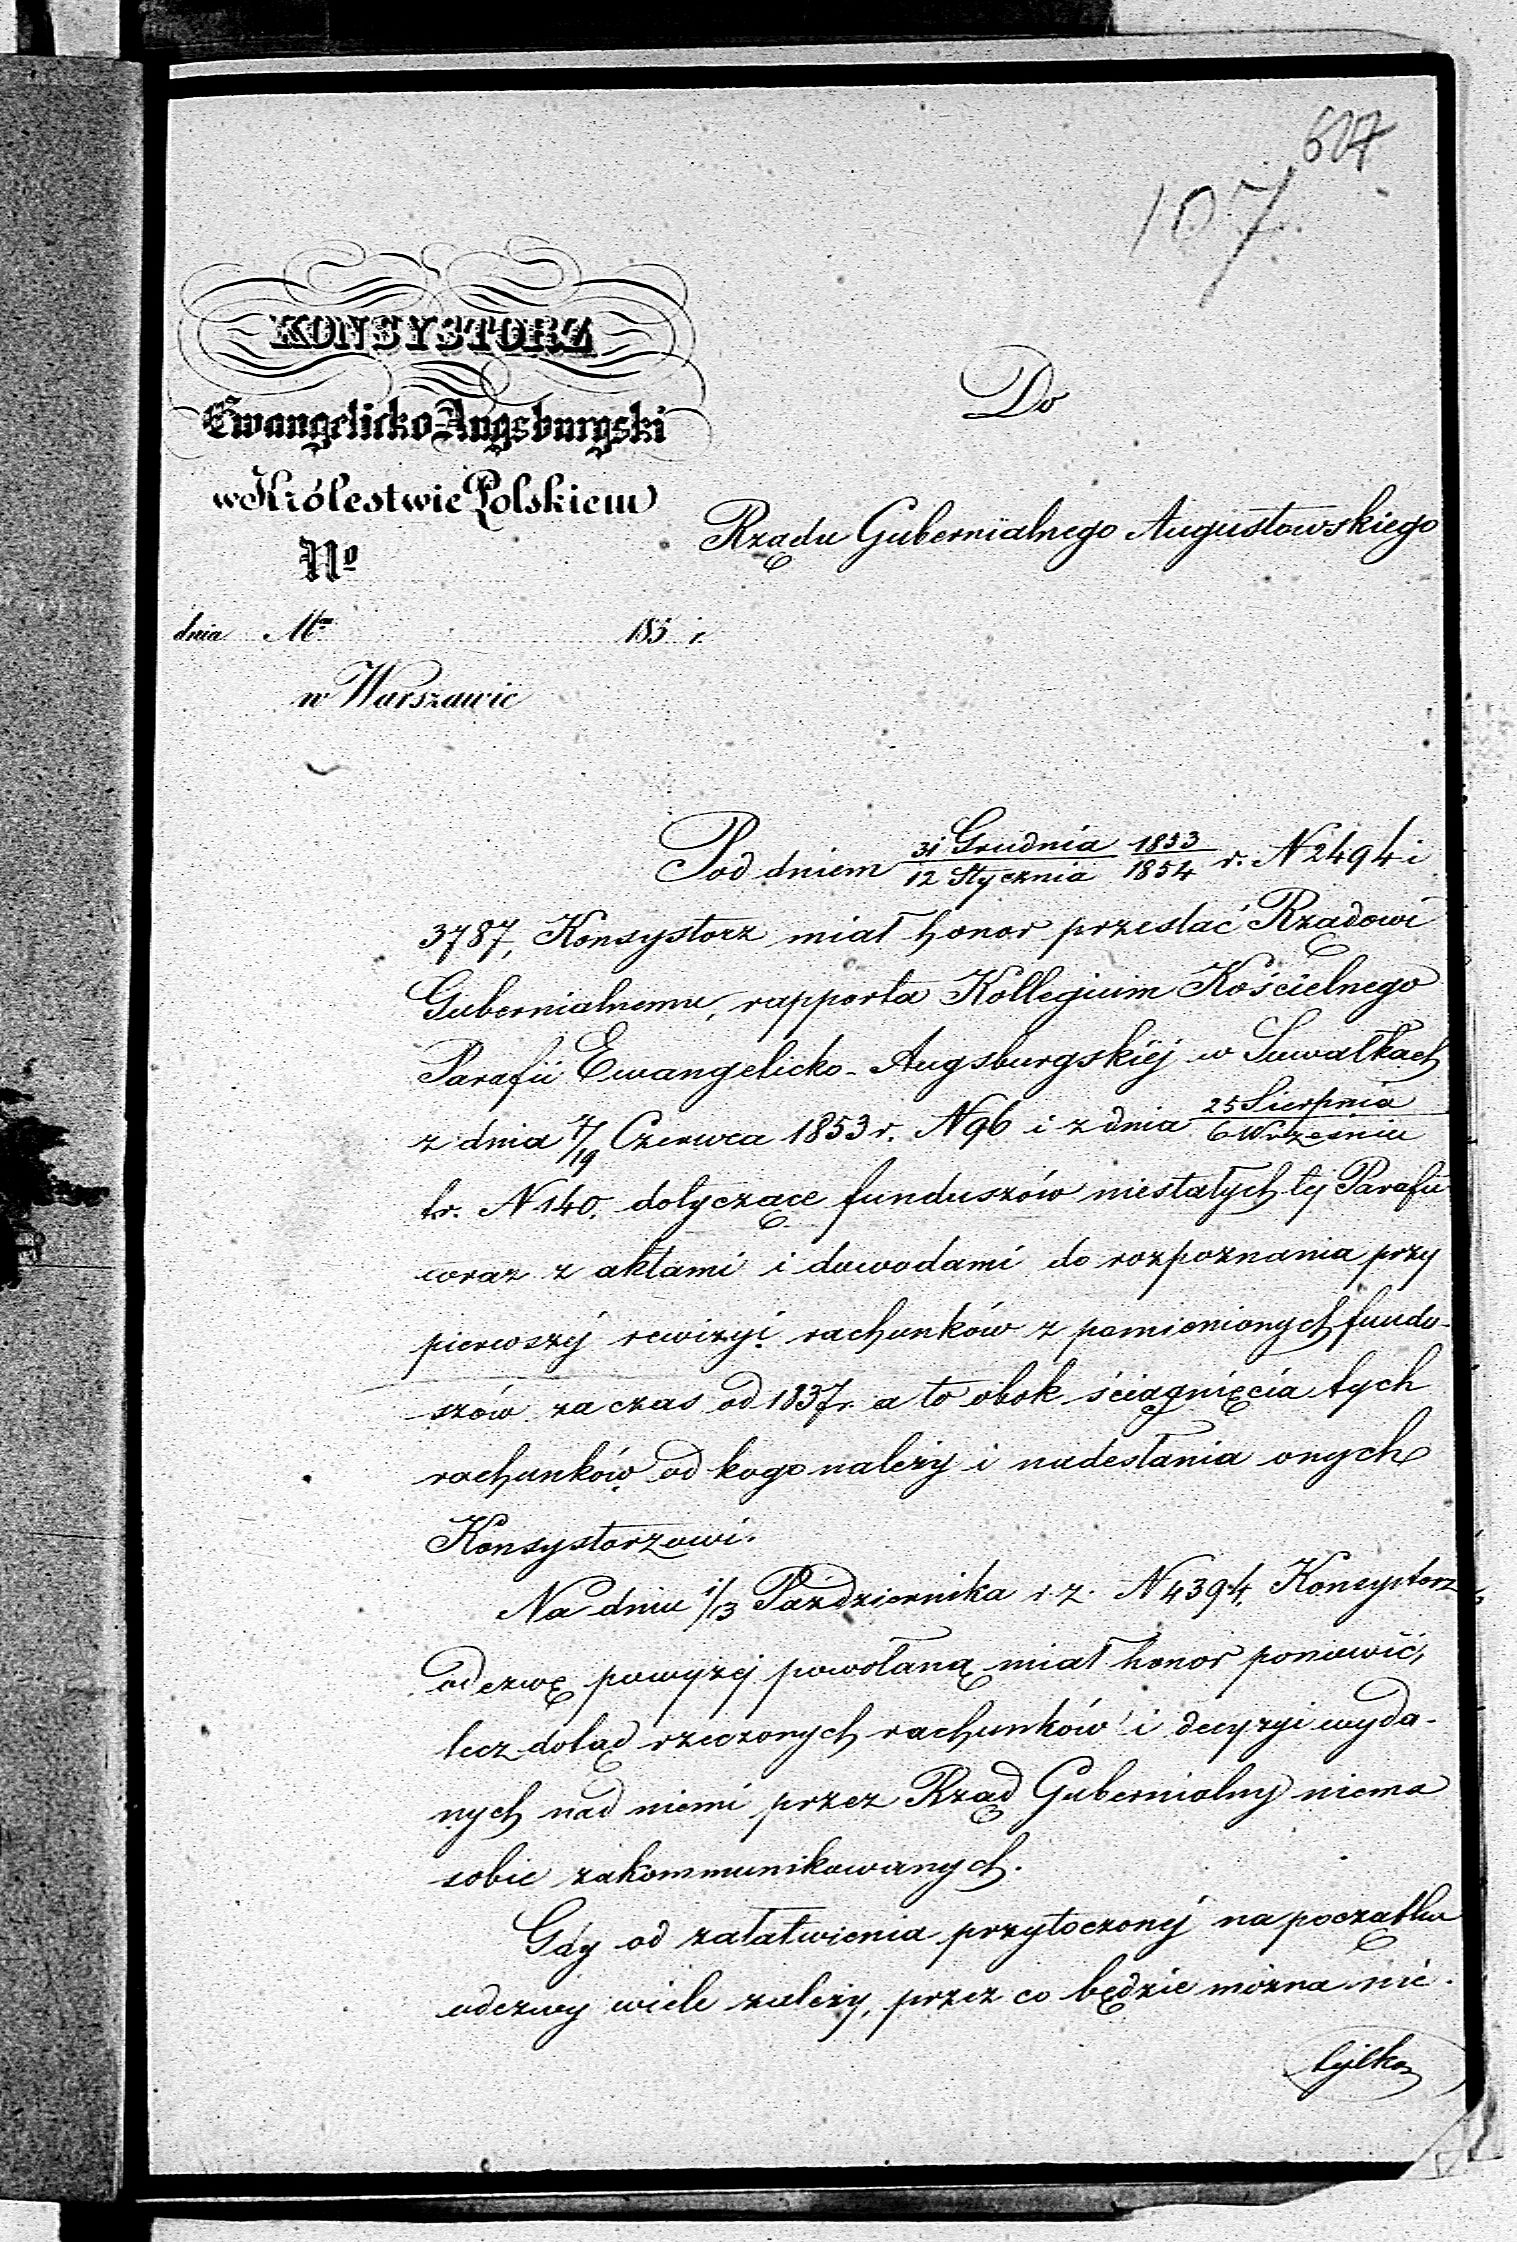 607
107
KONSYSTORZ
Ewangelicko Augsburgski
w Królestwie Polskiem
No
dnia Mca 185 r.
w Warszawie
Do
Rządu Gubernialnego Augustowskiego
Pod dniem 31 Grudnia/12 Stycznia 1853/1854 r. N 2494 i
3787, Konsystorz miał honor przesłać Rządowi
Gubernialnemu, rapporta Kollegium Kościelnego
Parafii Ewangelicko-Augsburgskiéj w Suwałkach
z dnia 7/19 Czerwca 1853 r. N 96 i z dnia 25 Sierpnia/6 Września
t.r. N 140. dotyczące funduszów niestałych téj Parafii
wraz z aktami i dowodami do rozpoznania przy
pierwszéj rewizyi rachunków z pomienionych fundu-
szów za czas od 1837 r. a to obok ściągnięcia tych
rachunków od kogo należy i nadesłania onych
Konsystorzowi.
Na dniu 1/13 Października r. z. N 4394, Konsystorz
odezwę powyżéj powołaną miał honor ponowić,
lecz dotąd rzeczonych rachunków i decyzyi wyda-
nych nad niemi przez Rząd Gubernialny niema
sobie zakommunikowanych.
Gdy od załatwienia przytoczonéj na początku
odezwy wiele zależy, przez co będzie można nie
tylko